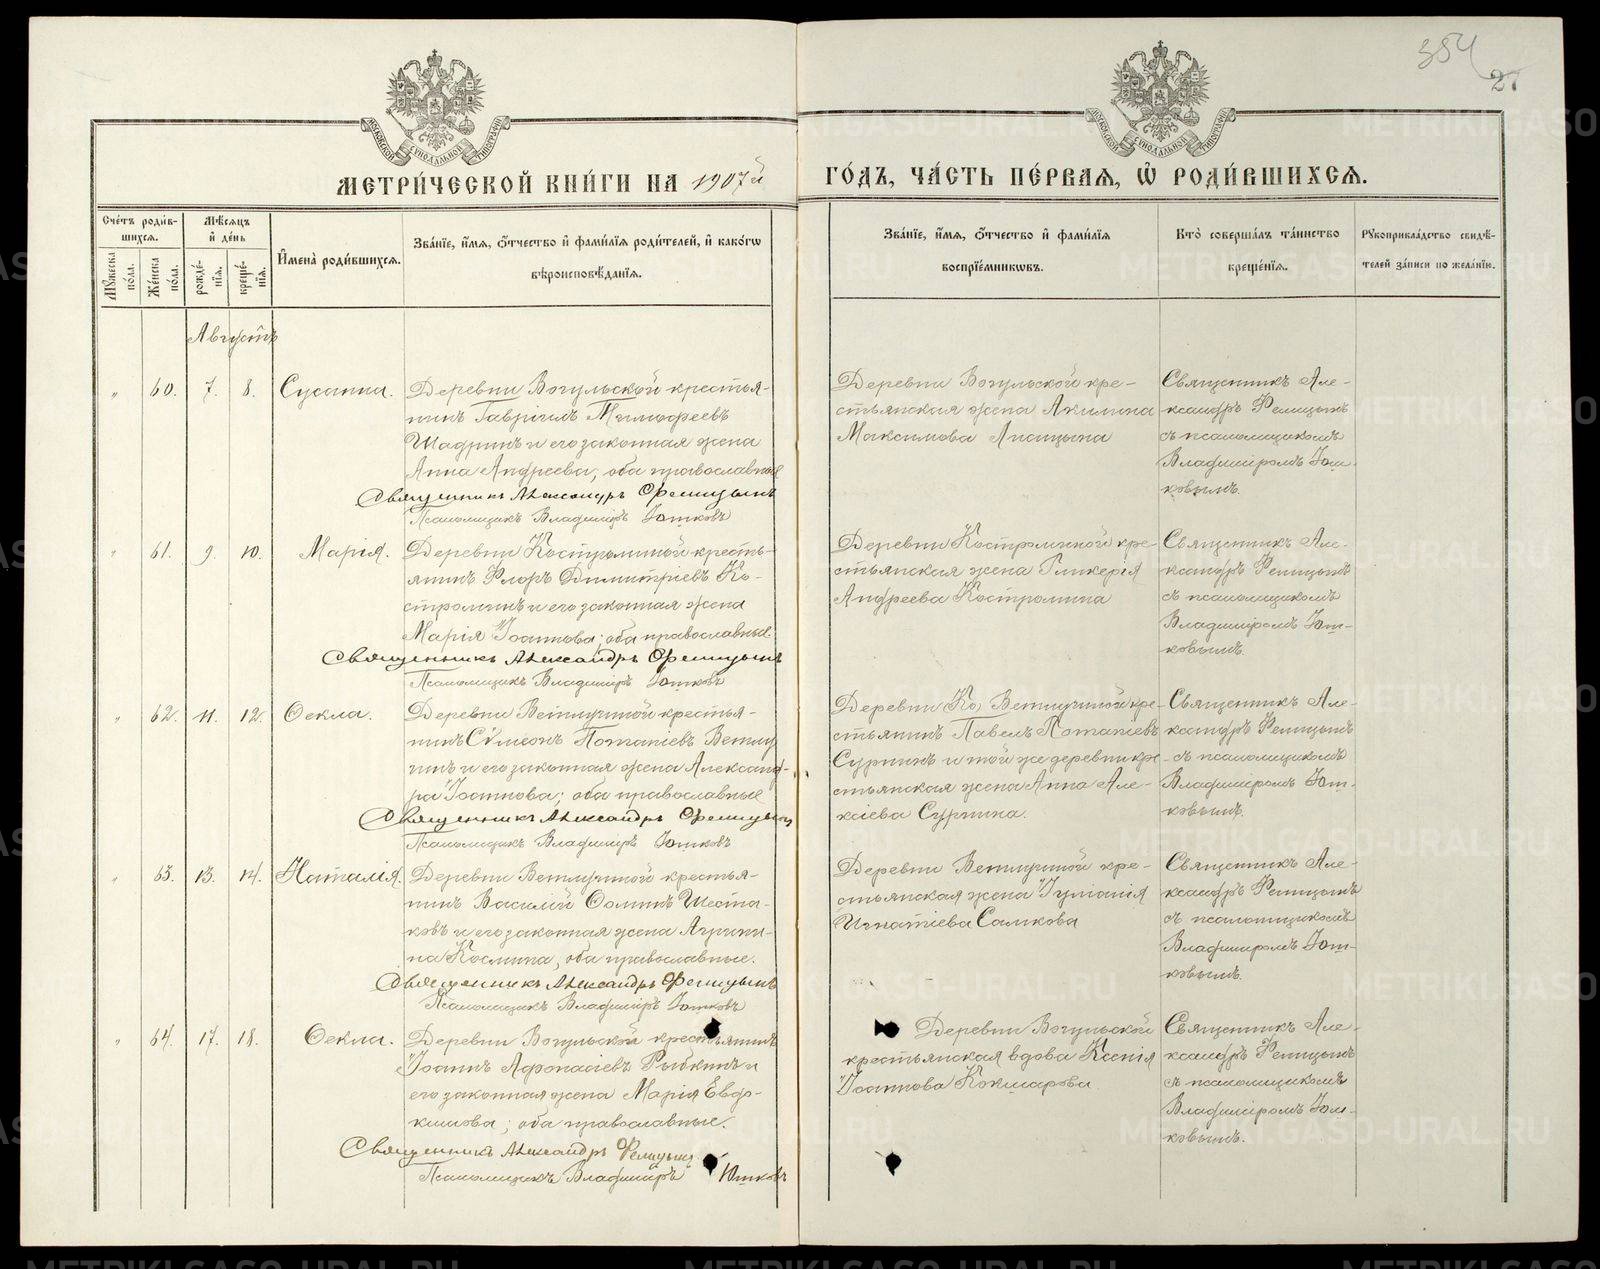 354
27
МОСКОВСКОЙ СѴНОДАЛЬНОЙ ТИПОГРАФІИ
МОСКОВСКОЙ СѴНОДАЛЬНОЙ ТИПОГРАФІИ
МЕТРИ́ЧЕСКОЙ КНИ́ГИ НА 1907й
ГО́ДЪ, ЧА́СТЬ ПЕ́РВАѦ, Ѡ҆ РОДИ́ВШИХСѦ.
Сче́тъ роди́в-
шихсѧ.
Мꙋ́жеска по́ла.
Же́нска по́ла.
Мѣ́сѧцъ
и҆ де́нь
рожде́-нїѧ.
креще́-нїѧ.
И҆мена̀ роди́вшихсѧ.
Зва́нїе, и҆́мѧ, ѻ҆́тчество и҆ фами́лїѧ роди́телей, и҆ како́гѡ
вѣроисповѣ́данїѧ.
Зва́нїе, и҆́мѧ, ѻ҆́тчество и҆ фами́лїѧ
воспрїе́мникѡвъ.
Кто̀ соверша́лъ та́инство
креще́нїѧ.
Рꙋкоприкла́дство свидѣ́-
телей за́писи по жела́нїю.
Августъ
" 60. 7. 8. Сусанна.
Деревни Вогульской крестья-
нинъ Гавріилъ Тимофеевъ
Шадринъ и его законная жена
Анна Андреева, оба православные
Священникъ Александръ Филицынъ
Псаломщикъ Владиміръ Юшковъ
Деревни Вогульской кре-
стьянская жена Акилина
Максимова Лисицына
Священникъ Але-
ксандръ Филицынъ
съ псаломщикомъ
Владиміромъ Юш-
ковымъ.
" 61. 9. 10. Марія.
Деревни Костромыной кресть-
янинъ Флоръ Димитріевъ Ко-
строминъ и его законная жена
Марія Іоаннова; оба православные.
Священникъ Александръ Филицынъ
Псаломщикъ Владиміръ Юшковъ
Деревни Костроминой кре-
стьянская жена Гликерія
Андреева Костромина
Священникъ Але-
ксандръ Филицынъ
съ псаломщикомъ
Владиміромъ Юш-
ковымъ.
" 62. 11. 12. Ѳекла.
Деревни Ветлугиной крестья-
нинъ Сѵмеонъ Потапіевъ Ветлу
гинъ и его законная жена Александ-
ра Іоаннова; оба православные
Священникъ Александръ Филицынъ
Псаломщикъ Владиміръ Юшковъ
Деревни Ко, Ветлугиной кре-
стьянинъ Павелъ Потапіевъ
Суринъ и той же деревни кре-
стьянская жена Анна Але-
ксіева Сурнина.
Священникъ Але-
ксандръ Филицынъ
съ псаломщикомъ
Владиміромъ Юш-
ковымъ.
" 63. 13. 14. Наталія.
Деревни Ветлугиной крестья-
нинъ Василій Ѳоминъ Шеста-
ковъ и его законная жена Агрипи-
на Космина, оба православные.
Священникъ Александръ Филицынъ
Псаломщикъ Владиміръ Юшковъ
Деревни Ветлугиной кре-
стьянская жена Іуліанія
Игнатіева Салкова
Священникъ Але-
ксандръ Филицынъ
съ псаломщикомъ
Владиміромъ Юш-
ковымъ.
" 64. 17. 18. Ѳекла.
Деревни Вогульской крестьянинъ
Іоаннъ Афонасіевъ Рыбкинъ и
его законная жена Марія Евдо-
кимова; оба православные.
Священникъ Александръ Филицынъ
Псаломщикъ Владиміръ Юшковъ
Деревни Вогульской
крестьянская вдова Ксенія
Іоаннова Кокшарова.
Священникъ Але-
ксандръ Филицынъ
съ псаломщикомъ
Владиміромъ Юш-
ковымъ.
METRIKI.GASO-URAL.RU